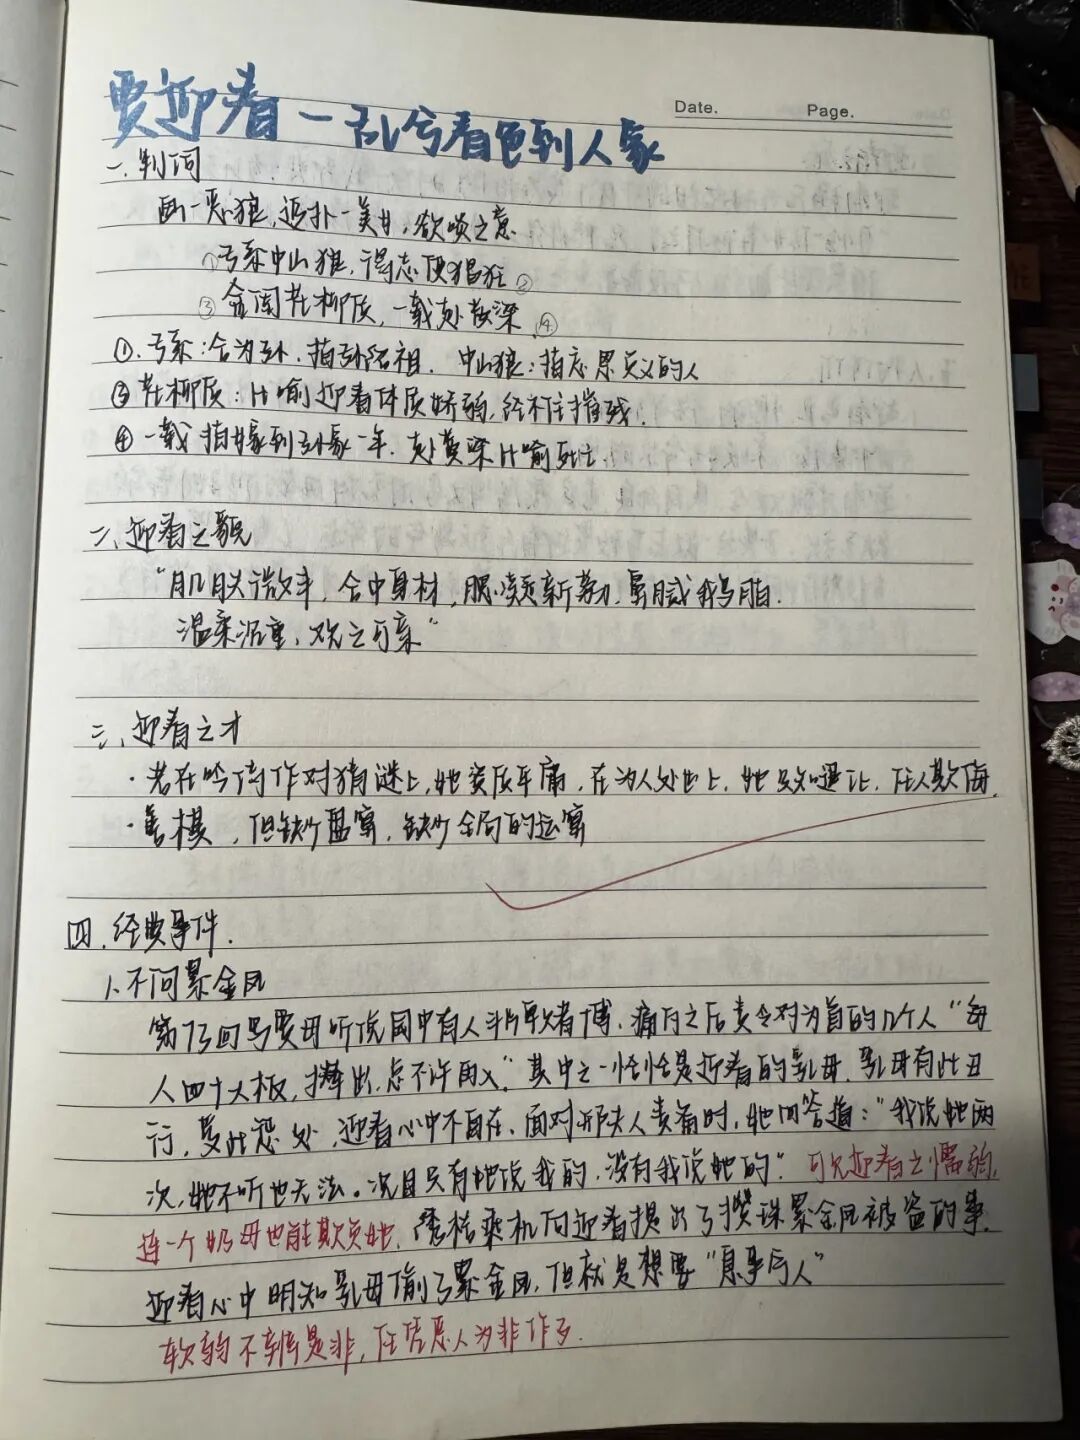 Date. Page.
贾迎春一乱兮春色到人家
一、判词
画一恶狼,追扑一美女,欲啖之意
①子系中山狼,得志便猖狂②
③金闺花柳质,一载赴黄粱④
①.子系:合为孙,指孙绍祖. 中山狼:指忘恩负义的人
③花柳质:比喻迎春体质娇弱,经不住摧残.
④一载指嫁到孙家一年.赴黄粱比喻死亡
二、迎春之貌
"肌肤微丰,合中身材,腮凝新荔,鼻腻鹅脂.
温柔沉重,观之可亲"
三、迎春之才
·若在吟诗作对猜谜上,她资质平庸,在为人处世上,她只知退让,任人欺侮.
·善棋,但缺少盘算,缺少全局的运筹
四.经典事件.
1.不问累金凤
第73回写贾母听说园中有人斗牌赌博,痛斥之后责令对为首的几个人"每
人四十大板,撵出,总不许再入."其中之一恰恰是迎春的乳母.乳母有此丑
行,受此惩处,迎春心中不自在.面对邢夫人责备时,她回答道:"我说她两
次,她不听也无法。况且只有她说我的,没有我说她的."可见迎春之懦弱,
连一个奶母也能欺负她.绣桔乘机向迎春提出了攒珠累金凤被盗的事.
迎春心中明知乳母偷了累金凤,但就是想要"息事宁人"
软弱不辨是非,任凭恶人为非作歹.